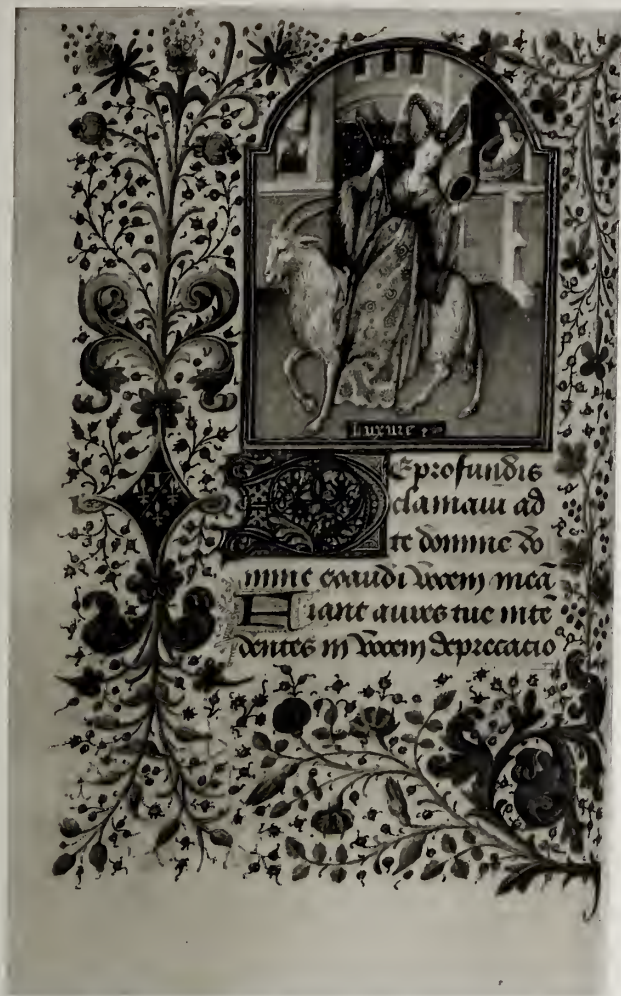 Luxure
De profundis
clamaui ad
te domine do
mine exaudi vocem meā
Fiant aures tue inte
dentes in vocem deprecatio